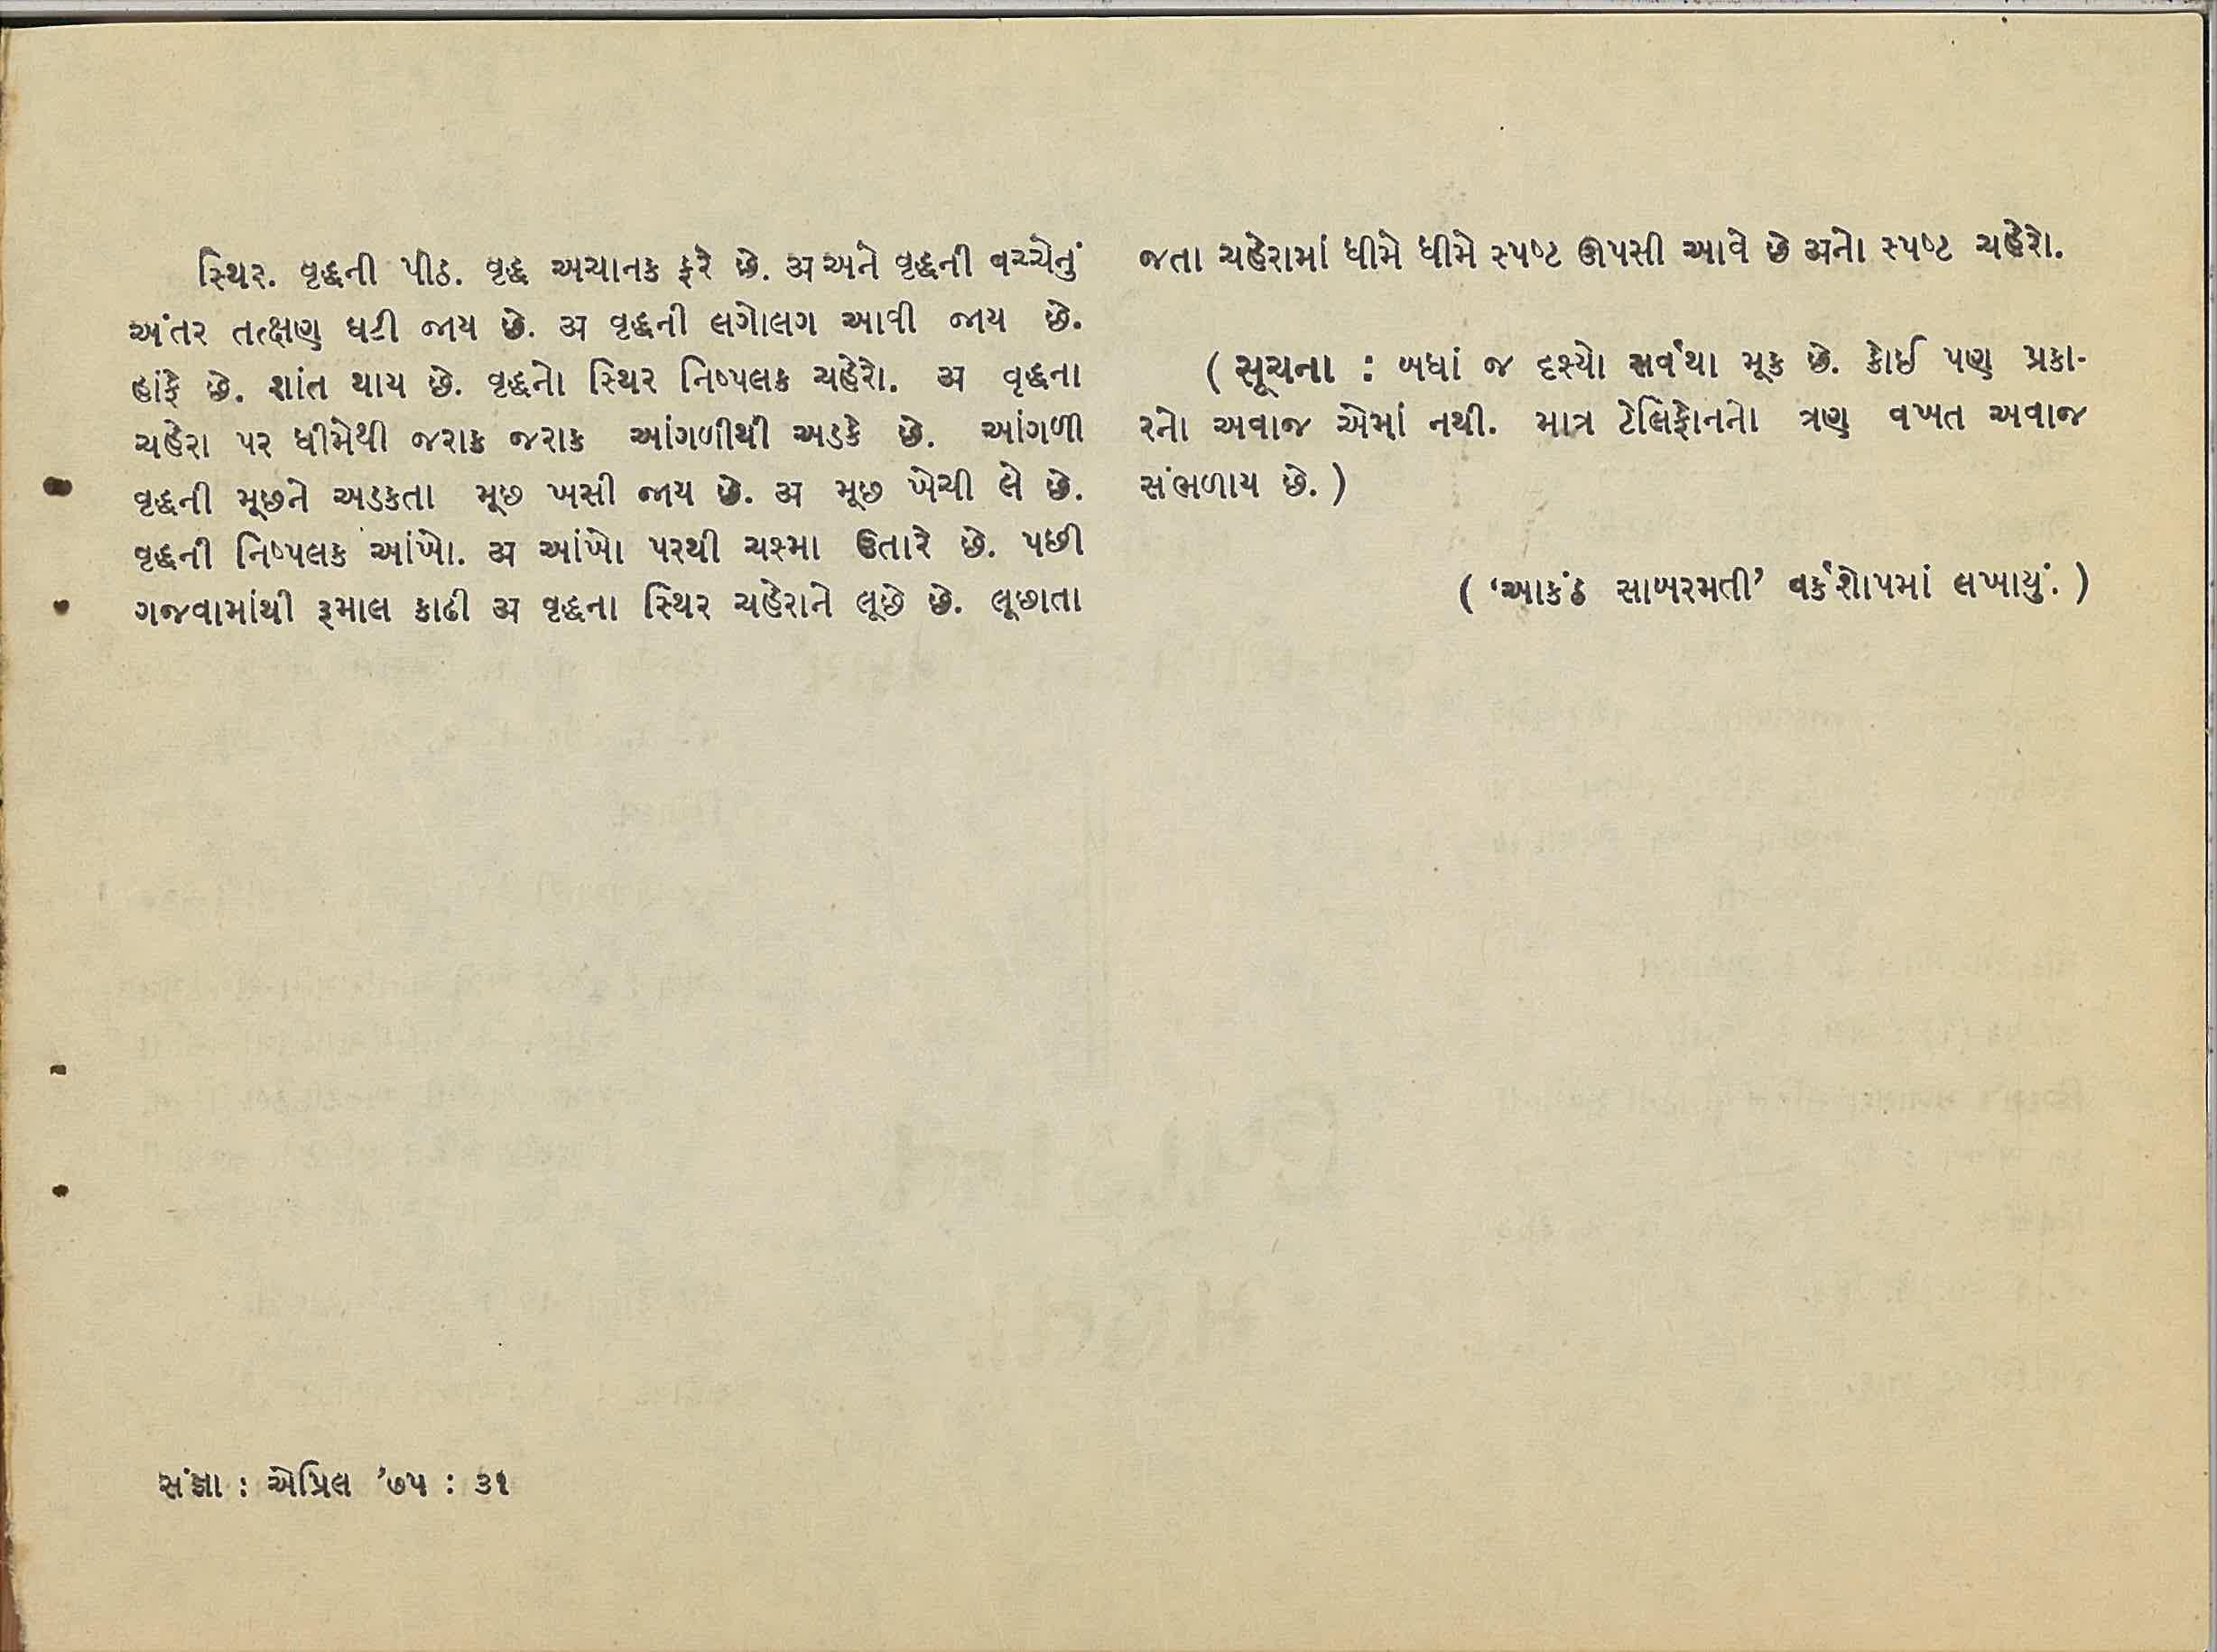 સ્થિર. વૃદ્ધની પીઠ. વૃદ્ધ અચાનક ફરે છે. अ અને વૃદ્ધની વચ્ચેનું
અંતર તત્ક્ષણ ઘટી જાય છે. अ વૃદ્ધની લગોલગ આવી જાય છે.
હાંફે છે. શાંત થાય છે. વૃદ્ધનો સ્થિર નિષ્પલક ચહેરો. अ વૃદ્ધના
ચહેરા પર ધીમેથી જરાક જરાક આંગળીથી અડકે છે. આંગળી
વૃદ્ધની મૂછને અડકતા મૂછ ખસી જાય છે. अ મૂછ ખેચી લે છે.
વૃદ્ધની નિષ્પલક આંખો. अ આંખો પરથી ચશ્મા ઉતારે છે. પછી
ગજવામાંથી રૂમાલ કાઢી अ વૃદ્ધના સ્થિર ચહેરાને લૂછે છે. લૂછાતા
જતા ચહેરામાં ધીમે ધીમે સ્પષ્ટ ઊપસી આવે છે अનો સ્પષ્ટ ચહેરો.
( સૂચના : બધાં જ દૃશ્યો સર્વથા મૂક છે. કોઈ પણ પ્રકા-
રનો અવાજ એમાં નથી. માત્ર ટેલિફોનનો ત્રણ વખત અવાજ
સંભળાય છે. )
( ‘આકંઠ સાબરમતી’ વર્કશોપમાં લખાયું. )
સંજ્ઞા : એપ્રિલ ’૭૫ : ૩૧